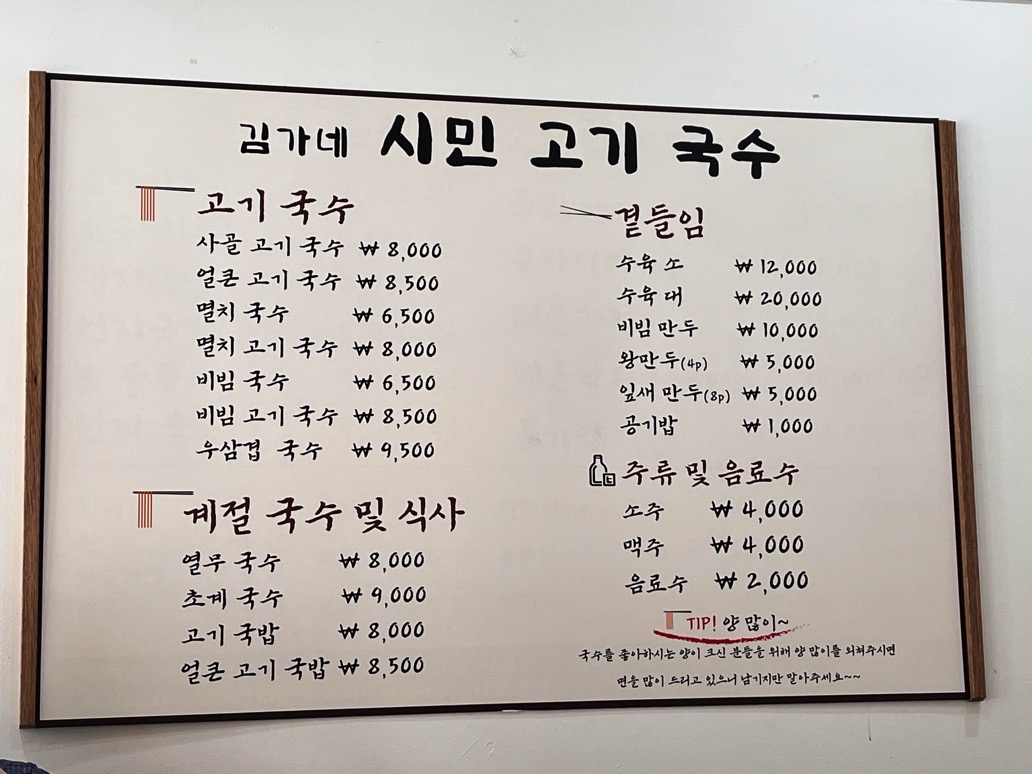 김가네 시민 고기 국수
고기 국수
사골 고기 국수 ₩ 8,000
얼큰 고기 국수 ₩ 8,500
멸치 국수 ₩ 6,500
멸치 고기 국수 ₩ 8,000
비빔 국수 ₩ 6,500
비빔 고기 국수 ₩ 8,500
우삼겹 국수 ₩ 9,500
계절 국수 및 식사
열무 국수 ₩ 8,000
초계 국수 ₩ 9,000
고기 국밥 ₩ 8,000
얼큰 고기 국밥 ₩ 8,500
곁들임
수육 소 ₩ 12,000
수육 대 ₩ 20,000
비빔 만두 ₩ 10,000
왕만두(4p) ₩ 5,000
잎새 만두(8p) ₩ 5,000
공기밥 ₩ 1,000
주류 및 음료수
소주 ₩ 4,000
맥주 ₩ 4,000
음료수 ₩ 2,000
TIP! 양 많이~
국수를 좋아하시는 양이 크신 분들을 위해 양 많이를 외쳐주시면
면을 많이 드리고 있으니 남기지만 말아주세요~~